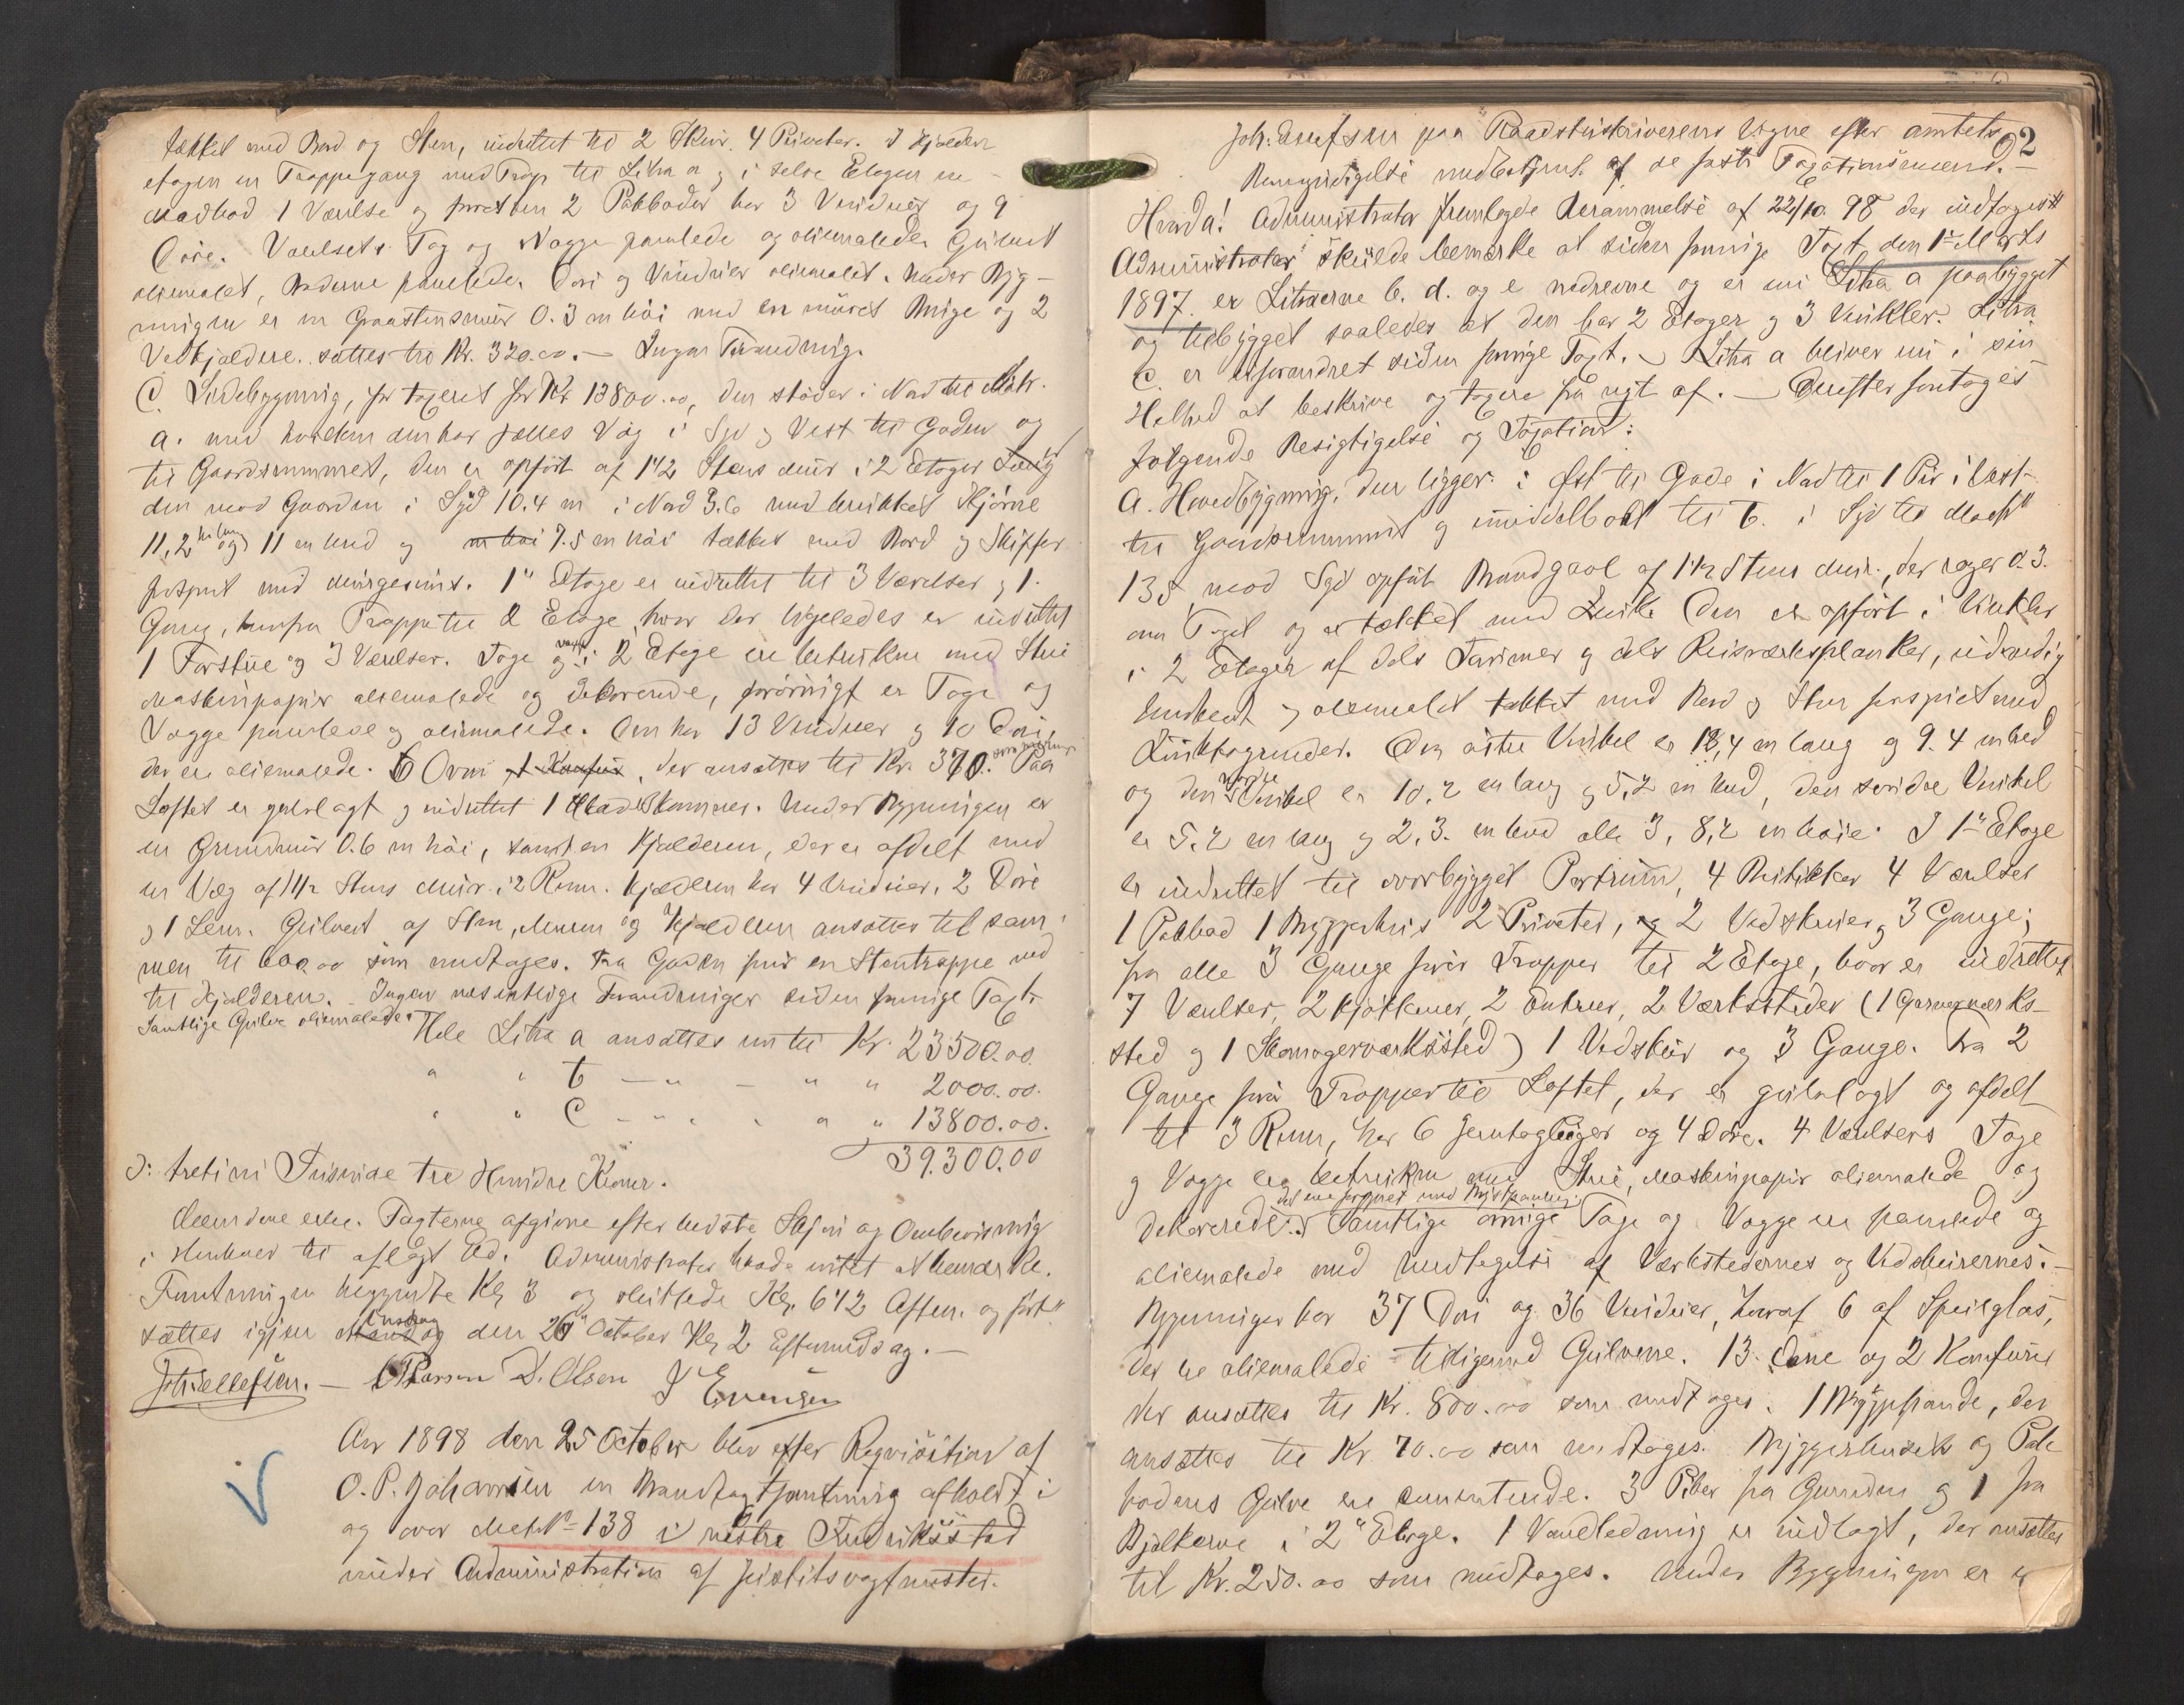 tækket med Bord og Sten, indrettet til 2 Skur, 4 Priveter. I Kjælder
etagen en Trappegang med Trap til Litra a og i selve Etagen en
Madbod 1 Værelse og 2 Pakboder har 3 Vinduer og 9
Döre. Værelsets Tag og Vægge panelede og oliemalede Gulvet
oliemalet, Boderne panelede. Döre og Vinduer oliemalet. Under Byg-
ningen er en Graastensmur 0.3 m höi med en muret Binge og 2
Vedkjældere. sættes til Kr. 320.00. — Ingen Forandring.
C. Sidebygning, för taxeret for Kr 13800.00, den stöder i Nord til Matr.
a. med hvilken den har fælles Væg i Syd og Vest til Gaden og
til Gaardsrummet, den er opfört af 1 1/2 Stens Mur i 2 Etager Læng
den mod Gaarden i Syd 10.4 m i Nord 3.6 med brækket Hjörne
11,2 m lang og 11 m bred og m höi 7.5 m höi tækket med Bord og Skiffer
forsynet med Murgesims. 1ste Etage er indrettet til 3 Værelser og 1
Gang, herfra Trappe til 2 Etage hvor der ligeledes er indrettet
1 Forstue og 3 Værelser. Tage og Vægge i 2 Etage er betrukne med Strie
Maskinpapir oliemalede og dekorerede, forövrigt er Tage og
Vægge panelede og oliemalede. Den har 13 Vinduer og 10 Döre,
der ere oliemalede. 6 Ovne 1 Komfur, der ansættes til Kr. 370. som medtages Paa
Loftet er gulvlagt og indrettet 1 Kammer. Under Bygningen er
en Grundmur 0.6 m höi, samt en Kjælderen, der er afdelt med
en Væg af 1 1/2 Stens Mur i 2 Rum. Kjælderen har 4 Vinduer, 2 Döre
og 1 Lem. Gulvet af Sten, Muren og Kjælderen ansættes til sam-
men til 600.00 som medtages. Fra Gaden förer en Stentrappe ned
til Kjælderen. — Ingen væsentlige Forandringer siden forrige Taxt.
Samtlige Gulve oliemalede. Hele Litra a ansættes nu til Kr. 23500.00
" " b — " — " " 2000.00.
" " C — " " " " 13800.00.
39.300.00
ɔ: tretini Tusinde tre Hundre Kroner.
Mændene erkl. Taxterne afgivne efter bedste Skjön og Overbevisning
i Henhold til aflagt Ed. Administrator havde intet at bemærke.
Forretningen begyndte Kl 3 og sluttede Kl. 6 1/2 Aften. og fort-
sættes igjen Mandag Onsdag den 26 October Kl 2 Eftermiddag. —
Joh. Ellefsen. — C Larsen D. Olsen J Evensen
Aar 1898 den 25 October blev efter Reqvisition af
O. P. Johansen en Brandtaxtforretning afholdt i
og over Matr No 138 i vestre Fredriksstad
under Administration af politivagtmester
92
Joh. Ellefsen paa Raadstuskriverens Vegne efter Amtets
Bemyndigelse med Bistand af de faste Taxationsmænd. —
Hvorda! Administrator fremlagde Berammelse af 22/10 98 der indtages
Administrator skulde bemærke at siden forrige Taxt den 1ste Marts
1897. er Litraerne b. d. og e nedrevne og er nu Litra a paabygget
og tilbygget saaledes at den har 2 Etager og 3 Vinkler. Litra
C. er uforandret siden forrige Taxt. — Litra a bliver nu i sin
Helhed at beskrive og taxere paa nyt af. — Derefter foretoges
følgende Besigtigelse og Taxation:
a. Hovedbygning, den ligger i Öst til Gade i Nord til i Vest
til Gaardsrummet og umiddelbart til b. i Syd til Matr No
135 mod Syd opfört Brandgavl af 1 1/2 Stens Mur, der rager 0.3
over Taget og er tækket med Zink. Den er opfört i Vinkler
i 2 Etager af dels Tømmer og dels Reisværksplanker, udvendig
bordklædt og oliemalet tækket med Bord og Sten forsynet med
Zinktagrender. Den østre Vinkel er 18,4 m lang og 9.4 m bred
og den nordre Vinkel er 10,2 m lang og 5,2 m bred, den söndre Vinkel
er 5.2 m lang og 2.3. m bred alle 3, 8,2 m höie. I 1ste Etage
er indrettet til overbygget Portrum, 4 Butikker 4 Værelser
1 Pakbod 1 Bryggerhus 2 Priveter, og 2 Vedskur, 3 Gange;
fra alle 3 Gange förer Trapper til 2 Etage, hvor er indrettet
7 Værelser, 2 Kjökkener, 2 Entreer, 2 Værksteder (1 Garververks-
sted og 1 Skomagerværksted) 1 Vedskur og 3 Gange. Fra 2
Gange förer Trapper til Loftet, der er gulvlagt og afdelt
til 3 Rum, har 6 Jerntagluger og 4 Döre. 4 Værelsers Tage
og Vægge ere betrukne med Strie, Maskinpapir oliemalede og
dekorerede. det ene forsynet med Brystpaneling. Samtlige övrige Tage og Vægge ere panelede og
oliemalede med Undtagelse af Værkstedernes og Vedskurernes. —
Bygningen har 37 Döre og 36 Vinduer, hvoraf 6 af Speilglas,
der er oliemalede tilligemed Gulvene. 13 Ovne og 2 Komfurer
der ansættes til Kr. 800.00 som medtages. 1 Bryggepande, der
ansættes til Kr. 70.00 som medtages. Bryggerhusets og Pak
bodens Gulve ere cementerede. 3 Piber fra Grunden og 1 fra
Bjelkerne i 2den Etage. 1 Vandledning er indlagt, der ansættes
til Kr. 250.00 som medtages. Under Bygningen er